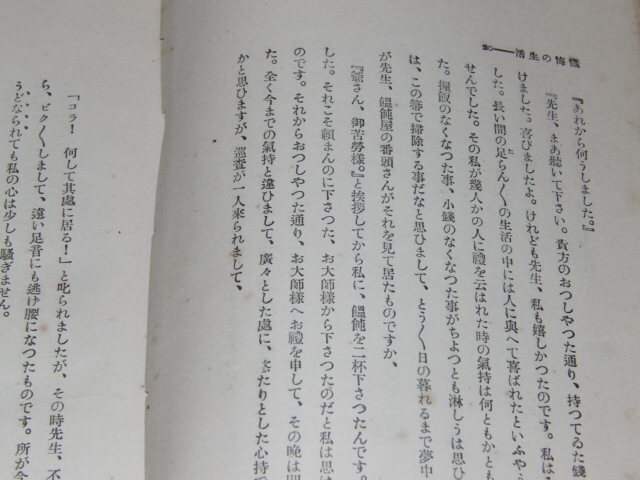 懺悔の生活――20
『あれから何うしました。』
『先生、まあ聴いて下さい。貴方のおつしやつた通り、持つてゐた錢
けました。喜びましたよ。けれども先生、私も嬉しかつたのです。私は
した。長い間の足らん〳〵の生活の中には人に與へて喜ばれたといふやう
せんでした。その私が幾人かの人に禮を云はれた時の氣持は何ともかとも
た。握飯のなくなつた事、小錢のなくなつた事がちよつとも淋しうは思ひ
は、この箒で掃除する事だなと思ひまして、とう〳〵日の暮れるまで夢中
が先生、饂飩屋の番頭さんがそれを見て居たものですか、
『爺さん、御苦勞樣。』と挨拶してから私に、饂飩を二杯下さつたんです。
した。それこそ頼まんのに下さつた、お大師樣から下さつたのだと私は思は
のです。それからおつしやつた通り、お大師樣へお禮を申して、その晩は
た。全く今までの氣持と違ひまして、廣々とした處に、ゆたりとした心持で
かと思ひますが、巡査が一人來られまして、
「コラ！何して其處に居る！」と叱られましたが、その時先生、不
ら、ビク〳〵しまして、遠い足音にも逃げ腰になつたものです。所が今
うどなられても私の心は少しも騒ぎません。